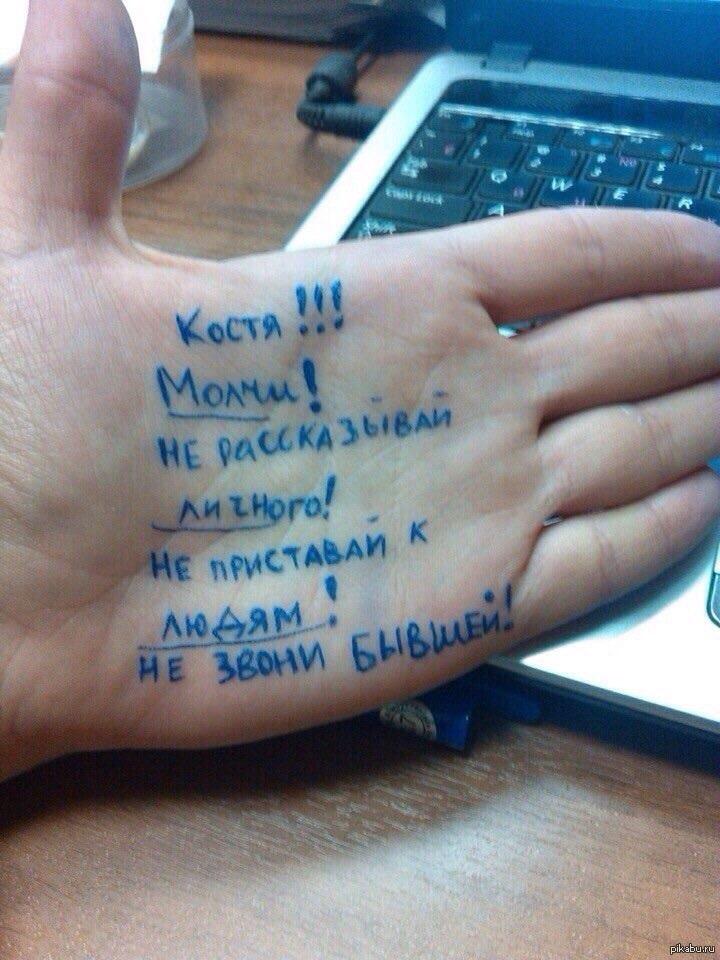 Костя!!!
Молчи!
НЕ РАССКАЗЫВАЙ
ЛИЧНОГО!
НЕ ПРИСТАВАЙ К
ЛЮДЯМ!
НЕ ЗВОНИ БЫВШЕЙ!
Caps Lock
Q W E
A
pikabu.ru